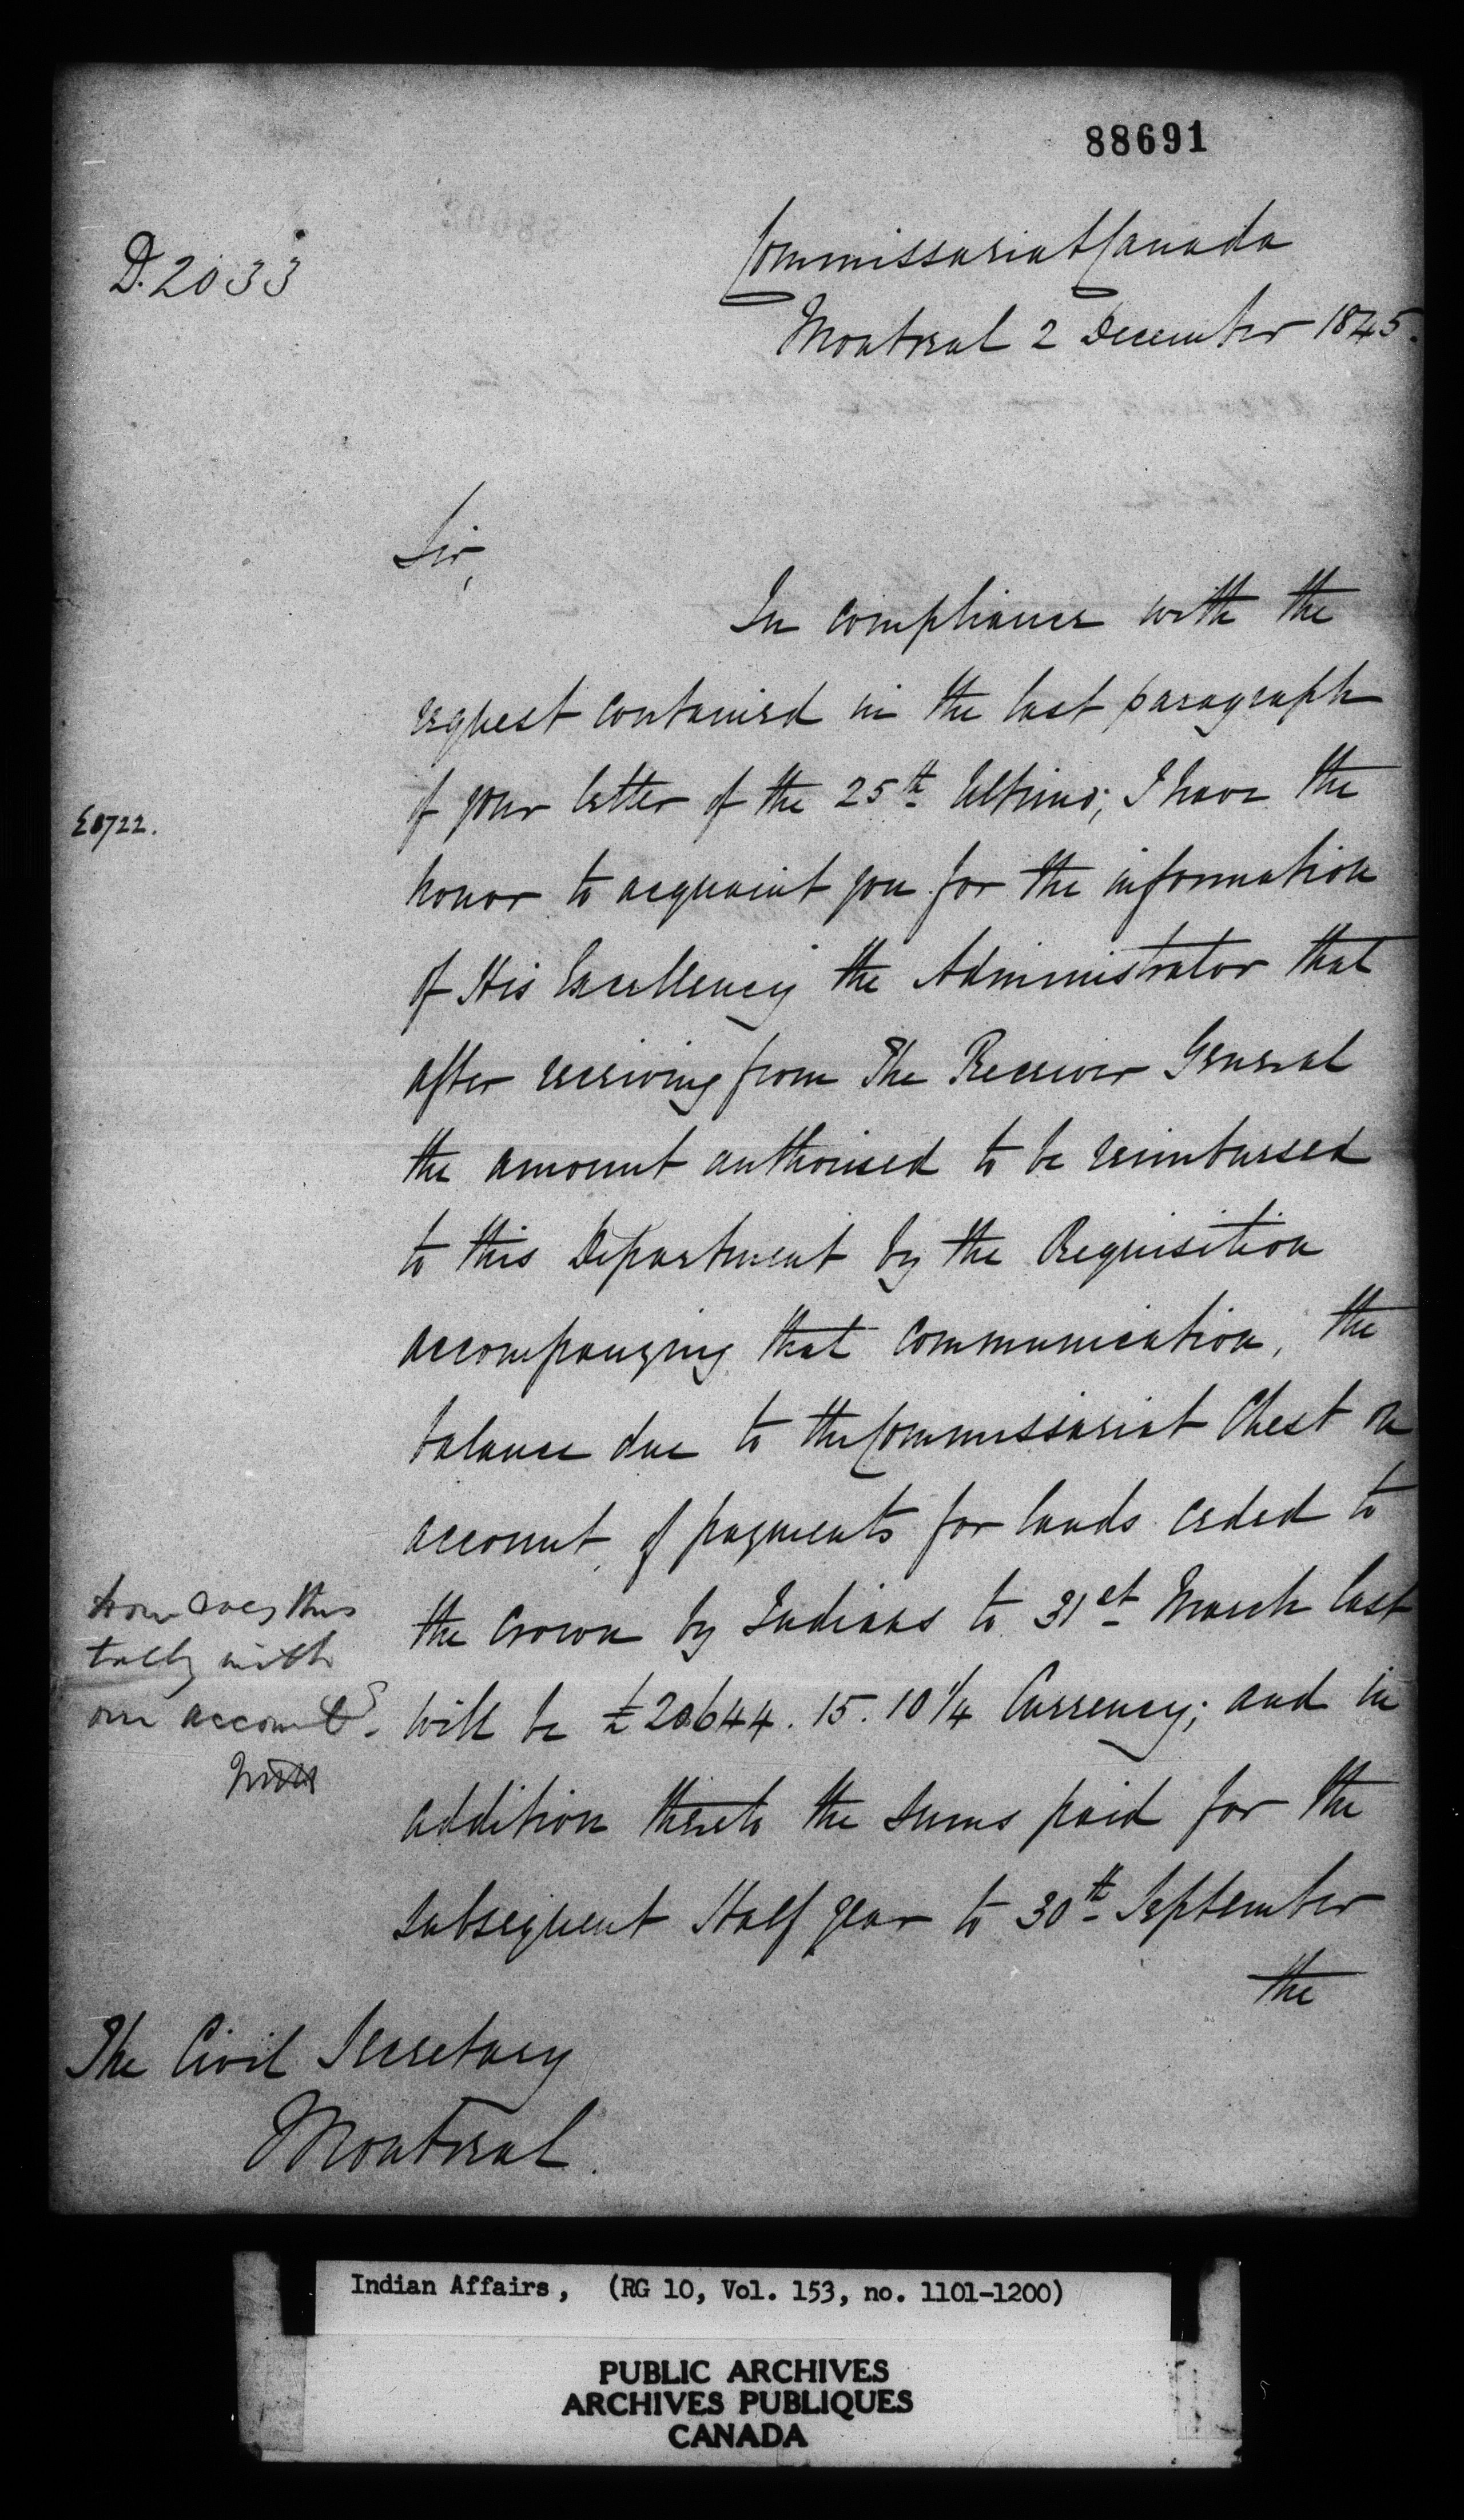 88691
D. 2033
Commissariat Canada
Montreal 2 December 1845.
Sir,
In compliance with the
request contained in the last paragraph
of your letter of the 25th Ultimo; I have the
honor to acquaint you for the information
of His Excellency the Administrator that
after receiving from The Receiver General
the amount authorised to be reimbursed
to this Department by the Requisition
accompanying that communication, the
balance due to the Commissariat Chest on
account of payments for lands ceded to
the Crown by Indians to 31st March last
will be £20644. 15. 10 1/4 Currency; and in
addition thereto the sums paid for the
subsequent Half year to 30th September
the
How does this
tally with
our accounts.
The Civil Secretary
Montreal.
Indian Affairs, (RG 10, Vol. 153, no. 1101-1200)
PUBLIC ARCHIVES
ARCHIVES PUBLIQUES
CANADA